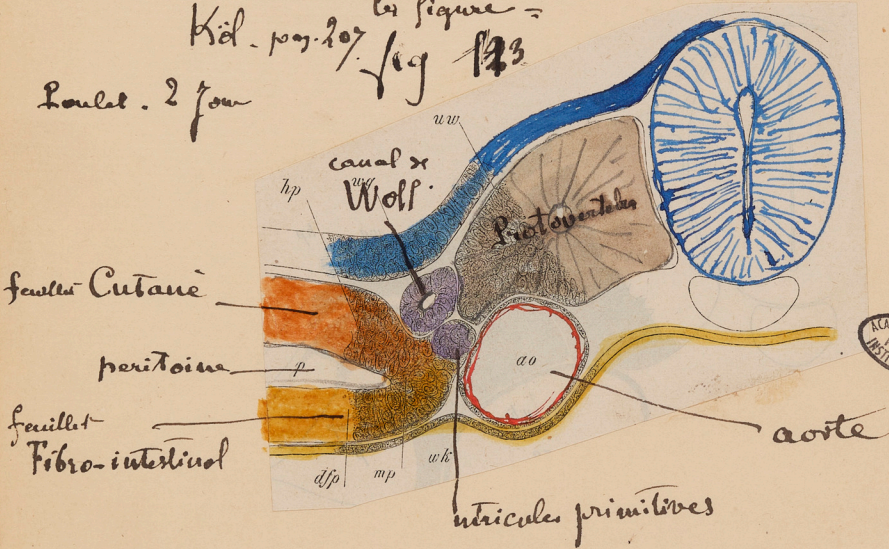 les figure =
Köl. pag. 207
fig 123
Poulet. 2 Jour
uw
canal de
Wolf
hp
wg
Protovertebre
feuillet Cutané
peritoine
p
ao
feuillet
Fibro-intestinal
aorte
dfp
mp
wk
utricules primitives
ACA
INST